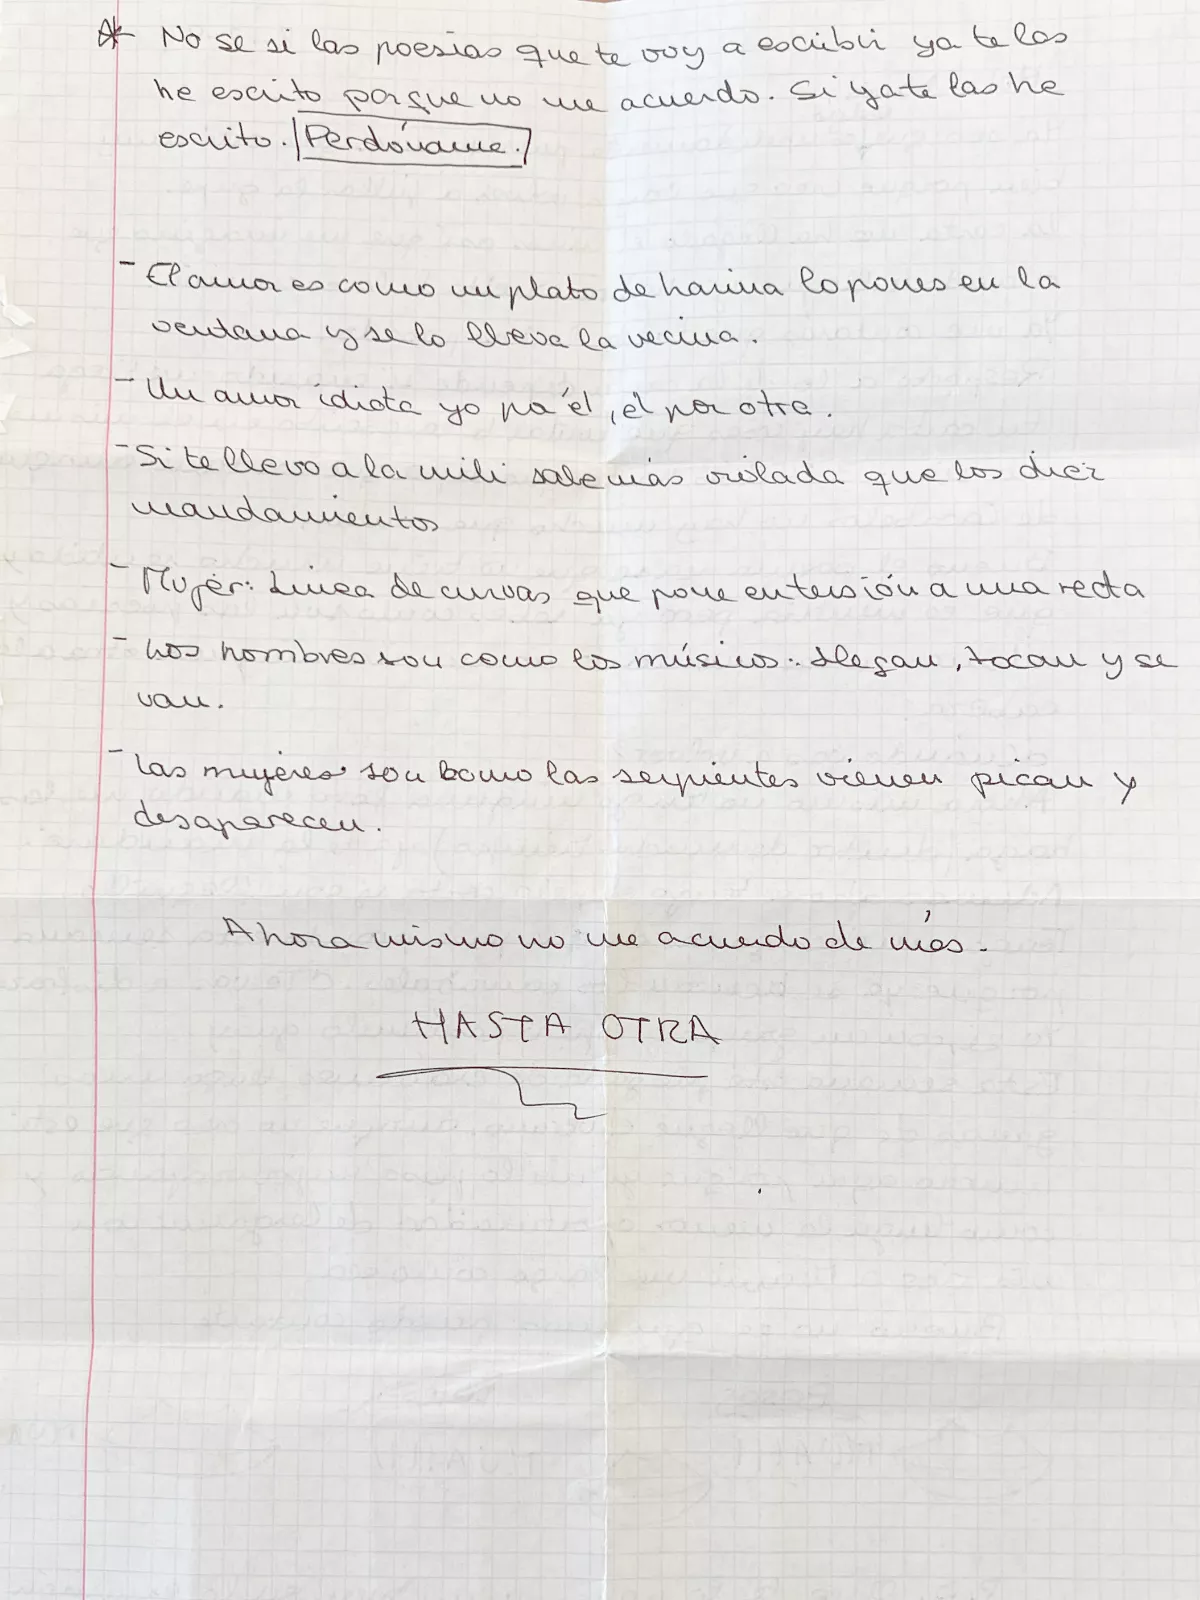 * No se si las poesías que te voy a escribir ya te las
he escrito porque no me acuerdo. Si ya te las he
escrito. Perdóname.
- El amor es como un plato de harina lo pones en la
ventana y se lo lleva la vecina.
- Un amor idiota yo pa él, el por otra.
- Si te llevo a la mili sale más violada que los diez
mandamientos
- Mujer: Linea de curvas que pone en tensión a una recta
- Los hombres son como los músicos: Llegan, tocan y se
van.
- Las mujeres son como las serpientes vienen pican y
desaparecen.
Ahora mismo no me acuerdo de más.
HASTA OTRA